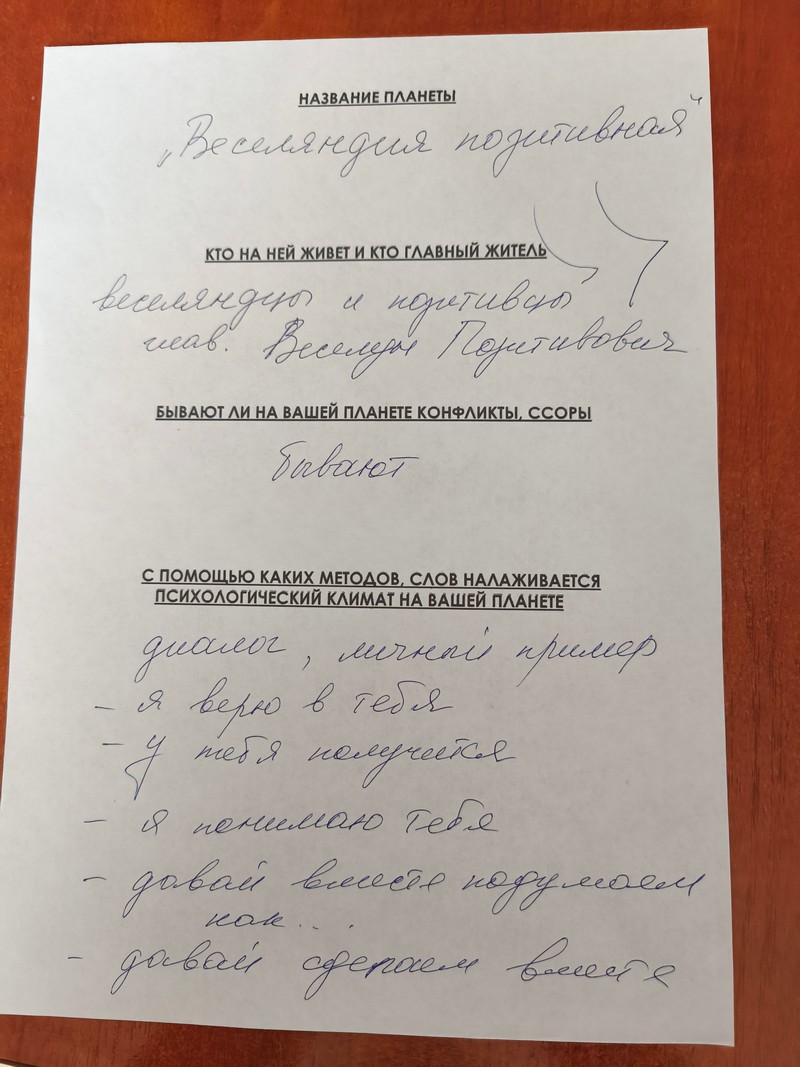 НАЗВАНИЕ ПЛАНЕТЫ
„Веселяндия позитивная“
КТО НА НЕЙ ЖИВЕТ И КТО ГЛАВНЫЙ ЖИТЕЛЬ
веселяндцы и позитивцы
глав. Веселун Позитивович
БЫВАЮТ ЛИ НА ВАШЕЙ ПЛАНЕТЕ КОНФЛИКТЫ, ССОРЫ
бывают
С ПОМОЩЬЮ КАКИХ МЕТОДОВ, СЛОВ НАЛАЖИВАЕТСЯ
ПСИХОЛОГИЧЕСКИЙ КЛИМАТ НА ВАШЕЙ ПЛАНЕТЕ
диалог, личный пример
- я верю в тебя
- у тебя получится
- я понимаю тебя
- давай вместе подумаем
как...
- давай сделаем вместе